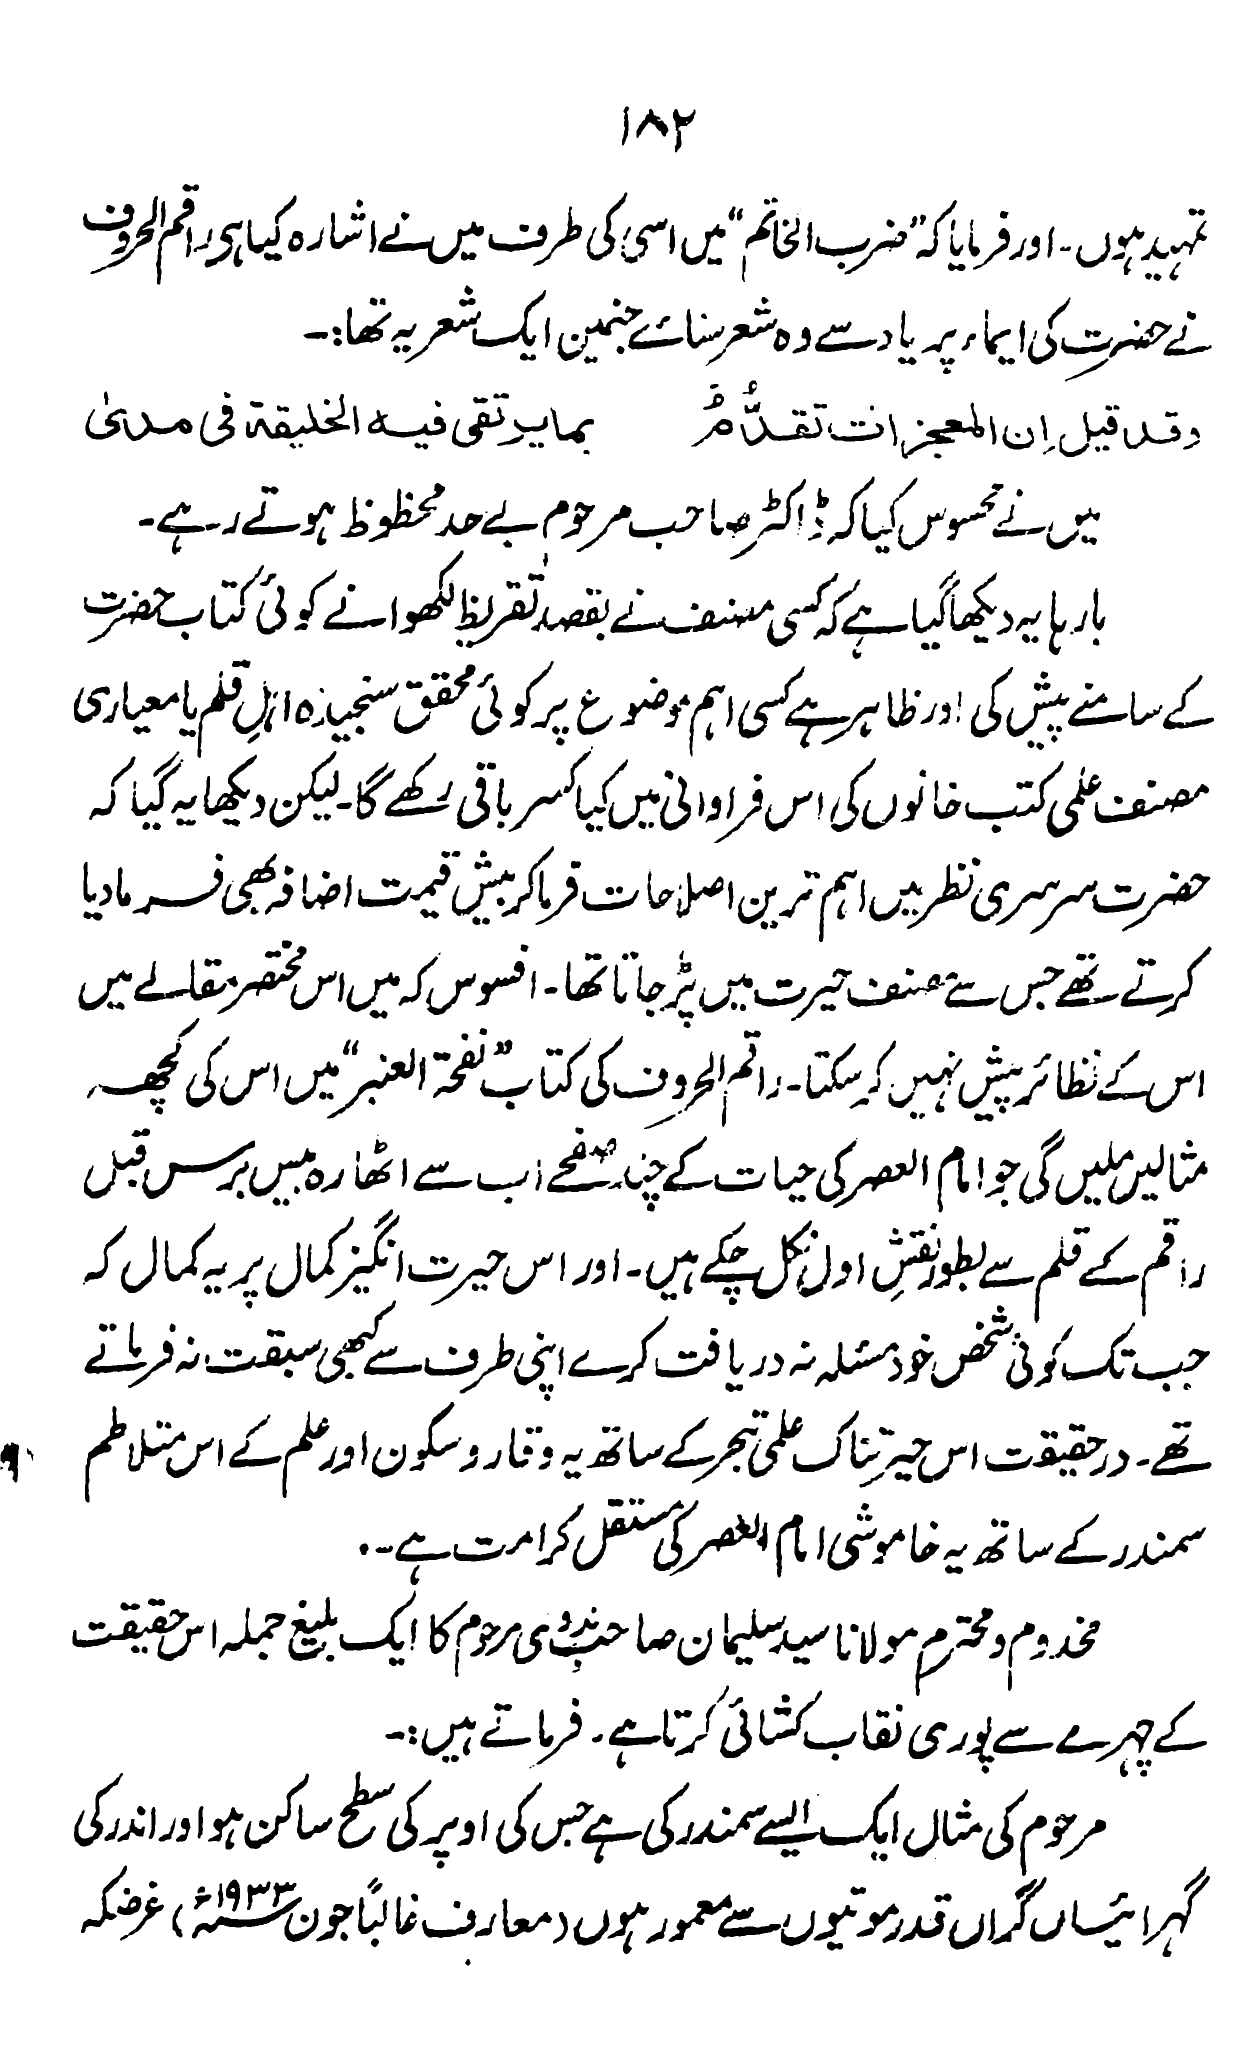 ۱۸۲
تمہید ہوں۔ اور فرمایا کہ "ضرب الخاتم" میں اسی کی طرف میں نے اشارہ کیا ہی راقم الحروف
نے حضرت کی ایماء پر یاد سے وہ شعر سنائے جنمین ایک شعر یہ تھا:۔
وقد قیل اِن المعجزات تقدُّمٌ بما یرتقی فیہ الخلیقۃ فی مدیٰ
میں نے محسوس کیا کہ ڈاکٹر صاحب مرحوم بے حد محظوظ ہوتے رہے۔
بارہا یہ دیکھا گیا ہے کہ کسی مصنف نے بقصد تقریظ لکھوانے کوئی کتاب حضرت
کے سامنے پیش کی اور ظاہر ہے کسی اہم موضوع پر کوئی محقق سنجیدہ اہلِ قلم یا معیاری
مصنف علمی کتب خانوں کی اس فراوانی میں کیا کسر باقی رکھے گا۔ لیکن دیکھا یہ گیا کہ
حضرت سرسری نظر میں اہم ترین اصلاحات فرما کر بیش قیمت اضافہ بھی فرمادیا
کرتے تھے جس سے مصنف حیرت میں پڑ جاتا تھا۔ افسوس کہ میں اس مختصر مقالے میں
اس کے نظائر پیش نہیں کر سکتا۔ راقم الحروف کی کتاب "نفحۃ العنبر" میں اس کی کچھ
مثالیں ملیں گی جو امام العصر کی حیات کے چند صفحے اب سے اٹھارہ بیس برس قبل
راقم کے قلم سے بطور نقشِ اول نکل چکے ہیں۔ اور اس حیرت انگیز کمال پر یہ کمال کہ
جب تک کوئی شخص خود مسئلہ نہ دریافت کرے اپنی طرف سے کبھی سبقت نہ فرماتے
تھے۔ درحقیقت اس حیرتناک علمی تبحر کے ساتھ یہ وقار و سکون اور علم کے اس متلاطم
سمندر کے ساتھ یہ خاموشی امام العصر کی مستقل کرامت ہے۔
مخدوم و محترم مولانا سید سلیمان صاحب ندوی مرحوم کا ایک بلیغ جملہ اس حقیقت
کے چہرے سے پوری نقاب کشائی کرتا ہے۔ فرماتے ہیں:۔
مرحوم کی مثال ایک ایسے سمندر کی ہے جس کی اوپر کی سطح ساکن ہو اور اندر کی
گہرائیاں گراں قدر موتیوں سے معمور ہوں (معارف غالباً جون ۱۹۳۳ء) غرضکہ